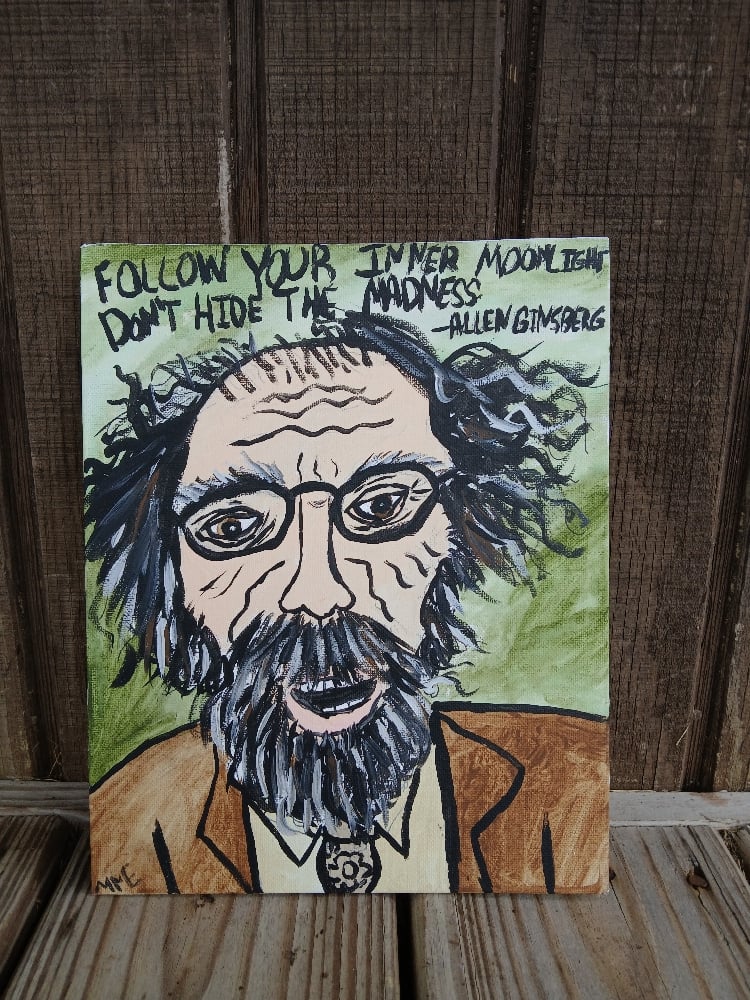 FOLLOW YOUR INNER MOONLIGHT
DON'T HIDE THE MADNESS
-ALLEN GINSBERG
MME